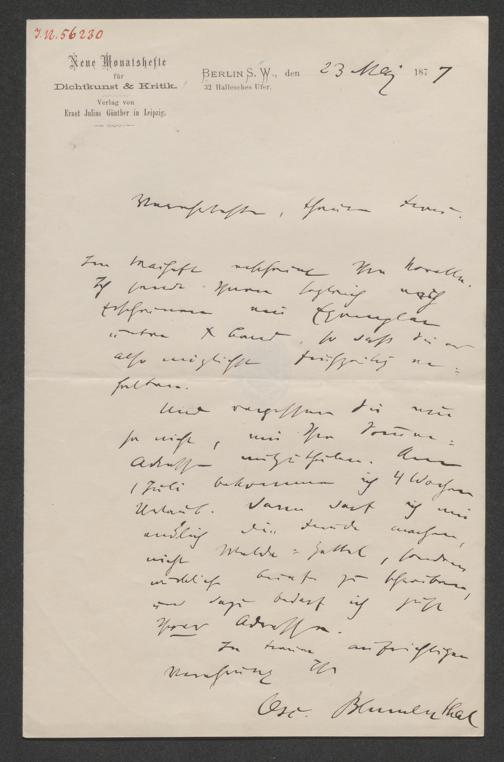 J.N. 56230
Neue Monatshefte
für
Dichtkunst & Kritik.
Verlag von
Ernst Julius Günther in Leipzig.
BERLIN S. W., den 23 Mai 1877
32 Hallesches Ufer.
Verehrteste, theure Frau.
Im Maiheft erscheint Ihre Novelle.
Ich sende Ihnen sogleich nach
Erscheinen ein Exemplar
unter X Band, so daß Sie es
also möglichst frühzeitig er=
halten.
Und vergessen Sie nun
ja nicht, mir Ihre Sommer=
Adresse mitzutheilen. Am
1 Juli bekomme ich 4 Wochen
Urlaub. Dann darf ich mir
endlich die Freude machen,
nicht Zettel, sondern
wirklich Briefe zu schreiben,
und dazu bedarf ich
Ihrer Adresse.
In treuer aufrichtiger
Verehrung Ihr
Osc. Blumenthal